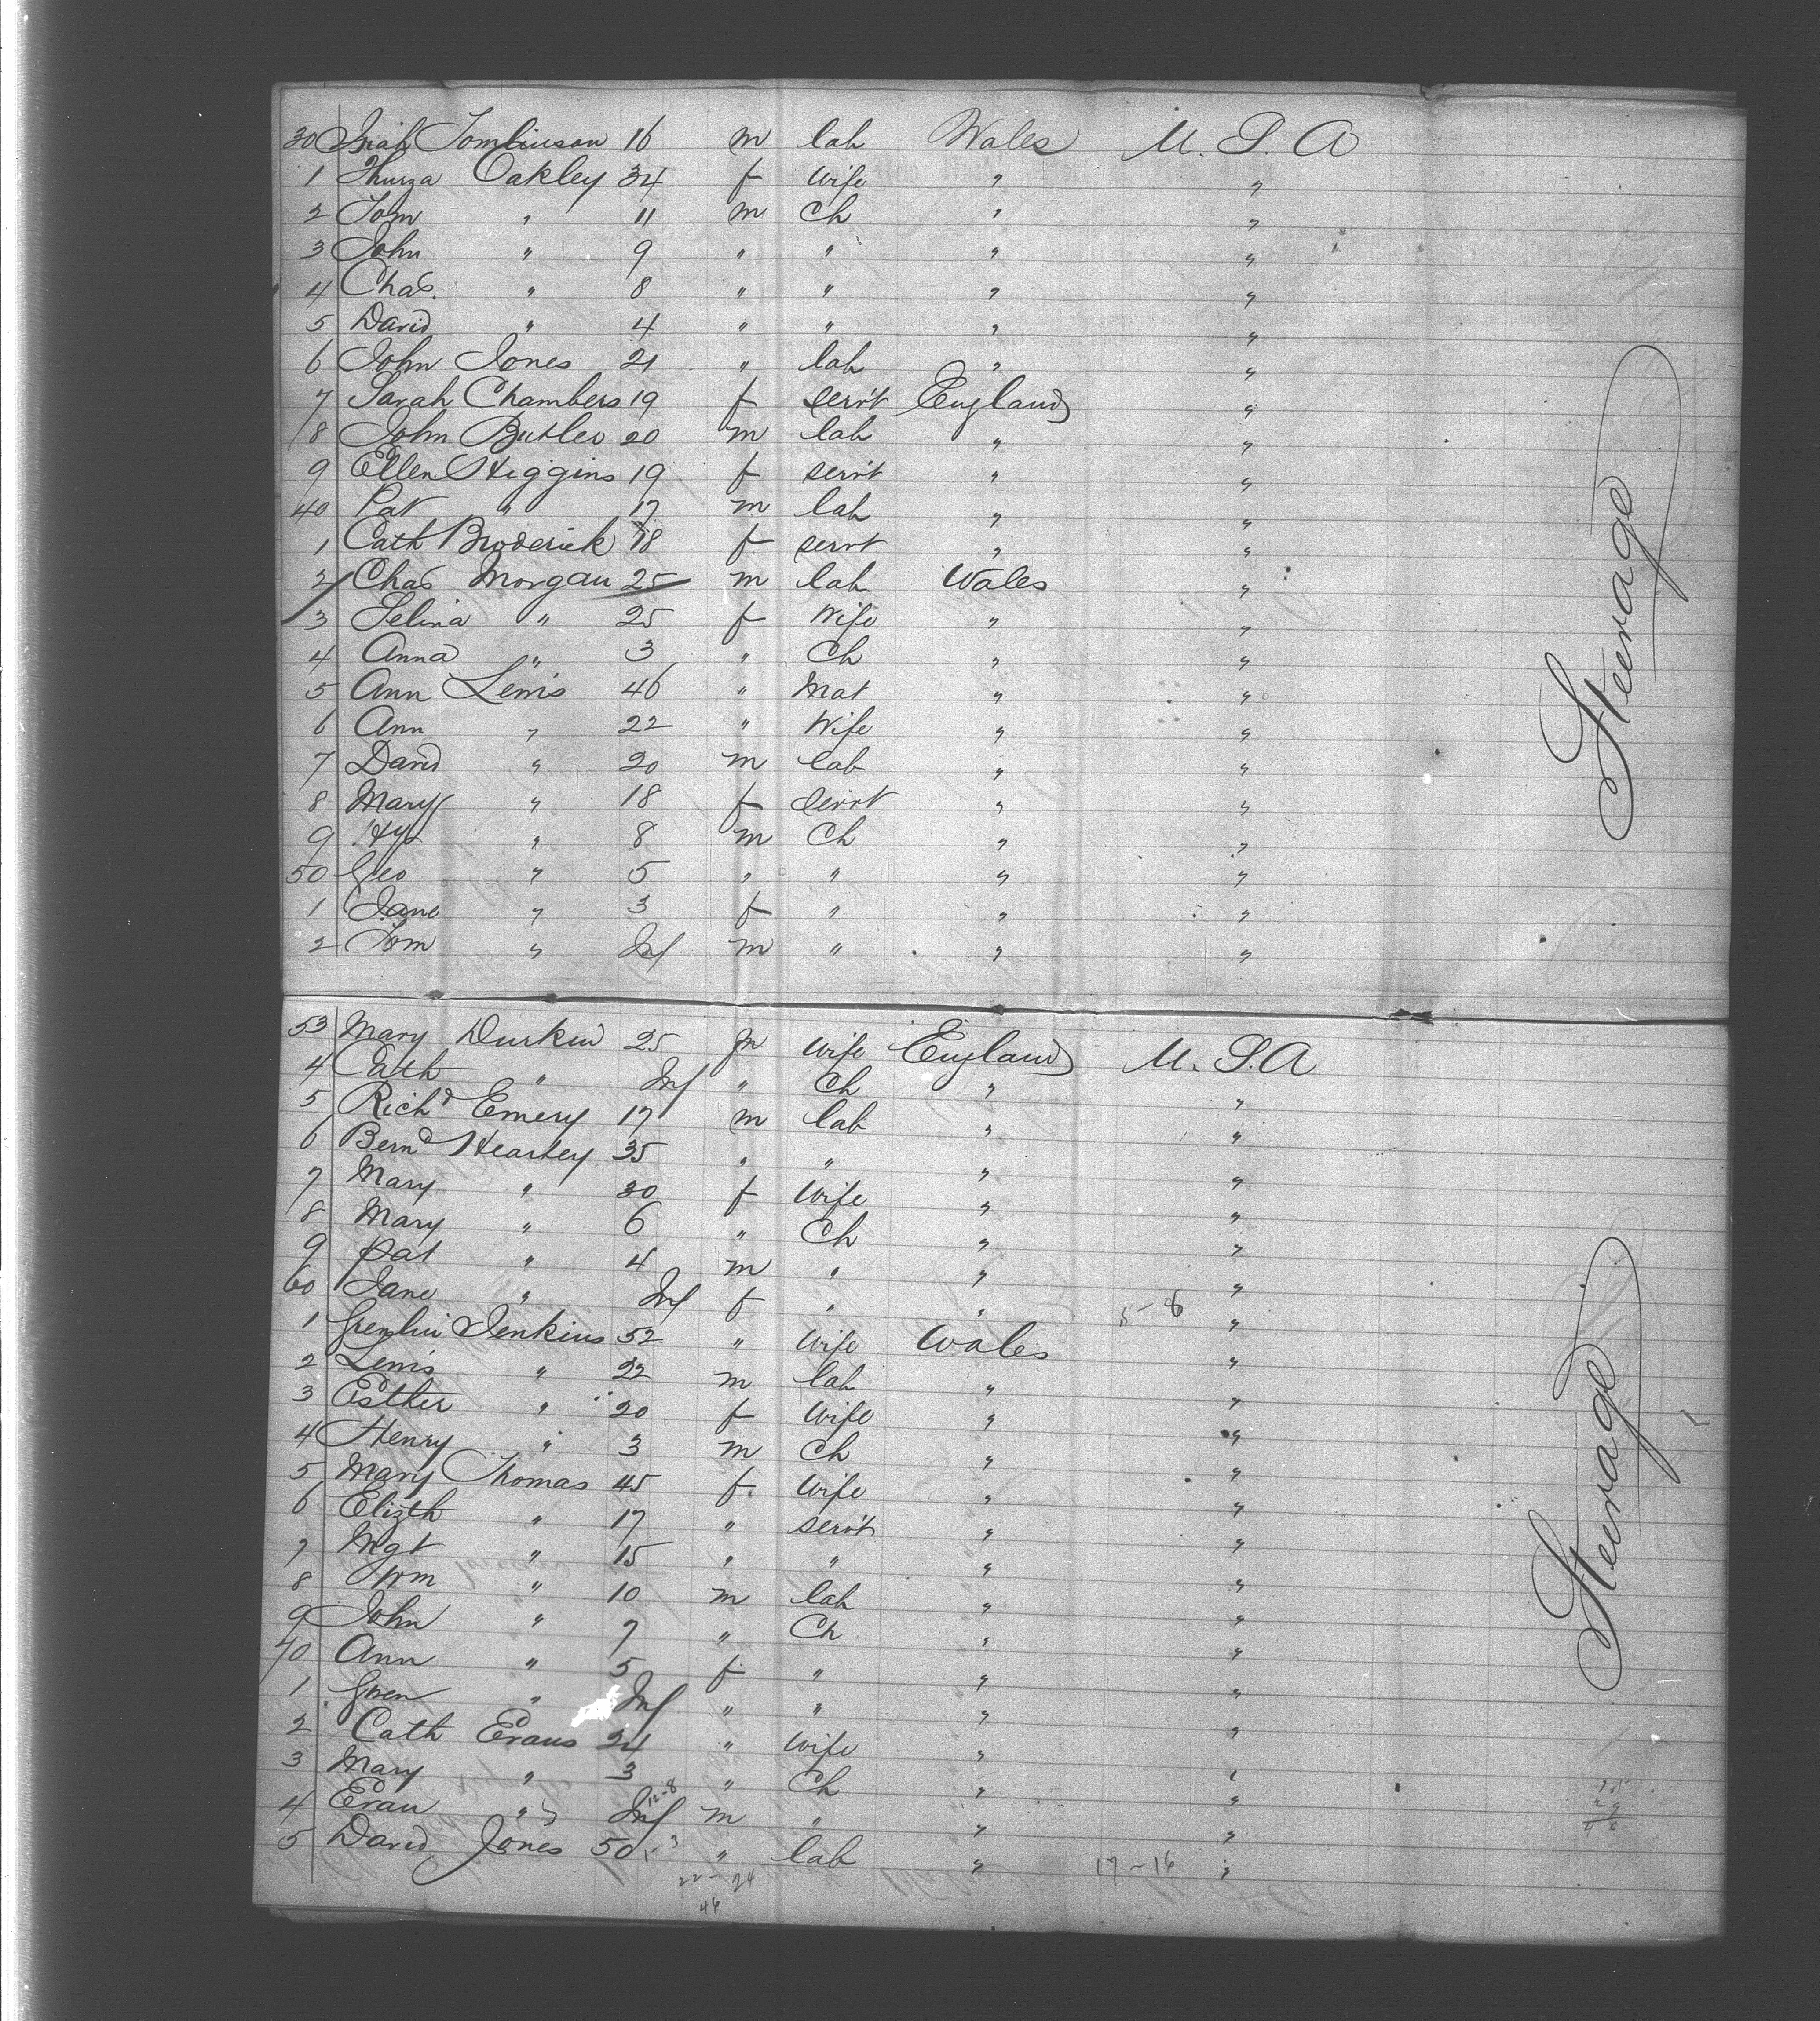 30 Isiah Tomlinson 16 m lab Wales U. S. A
1 Thurza Oakley 34 f wife " "
2 Tom " 11 m Ch " "
3 John " 9 " " " "
4 Chas. " 8 " " " "
5 David " 4 " " " "
6 John Jones 21 " lab " "
7 Sarah Chambers 19 f servt England "
8 John Butler 20 m lab " "
9 Ellen Higgins 19 f servt " "
40 Pat " 17 m lab " "
1 Cath Broderick 18 f servt " "
2 Chas Morgan 25 m lab Wales "
3 Selina " 25 f Wife " "
4 Anna " 3 " Ch " "
5 Ann Lewis 46 " Mat " "
6 Ann " 22 " Wife " "
7 David " 20 m lab " "
8 Mary " 18 f servt " "
9 " 8 m Ch " "
50 Geo " 5 " " " "
1 Jane " 3 f " " "
2 Tom " Inf m " " "
Steerage
53 Mary Durkin 25 wife England U. S. A
4 Cath " Inf " Ch " "
5 Richd Emery 17 m lab " "
6 Bernd Hearley 35 " " " "
7 Mary " 30 f Wife " "
8 Mary " 6 " Ch " "
9 Pat " 4 m " " "
60 Jane " Inf f " " 5-8 "
1 Jenkins 52 " Wife Wales "
2 Lewis " 22 m lab " "
3 Esther " 20 f Wife " "
4 Henry " 3 m Ch " "
5 Mary Thomas 45 f. Wife " "
6 Elizth " 17 " servt " "
7 Mgt " 15 " " " "
8 Wm " 10 m lab " "
9 John " 7 " Ch " "
70 Ann " 5 f " " "
1 Gwen " Inf " " " "
2 Cath Evans 24 " Wife " "
3 Mary " 3 " Ch " "
4 Evan " Inf 12-8 m " " "
5 David Jones 50 " lab " 17-16 "
22-24
46
Steerage